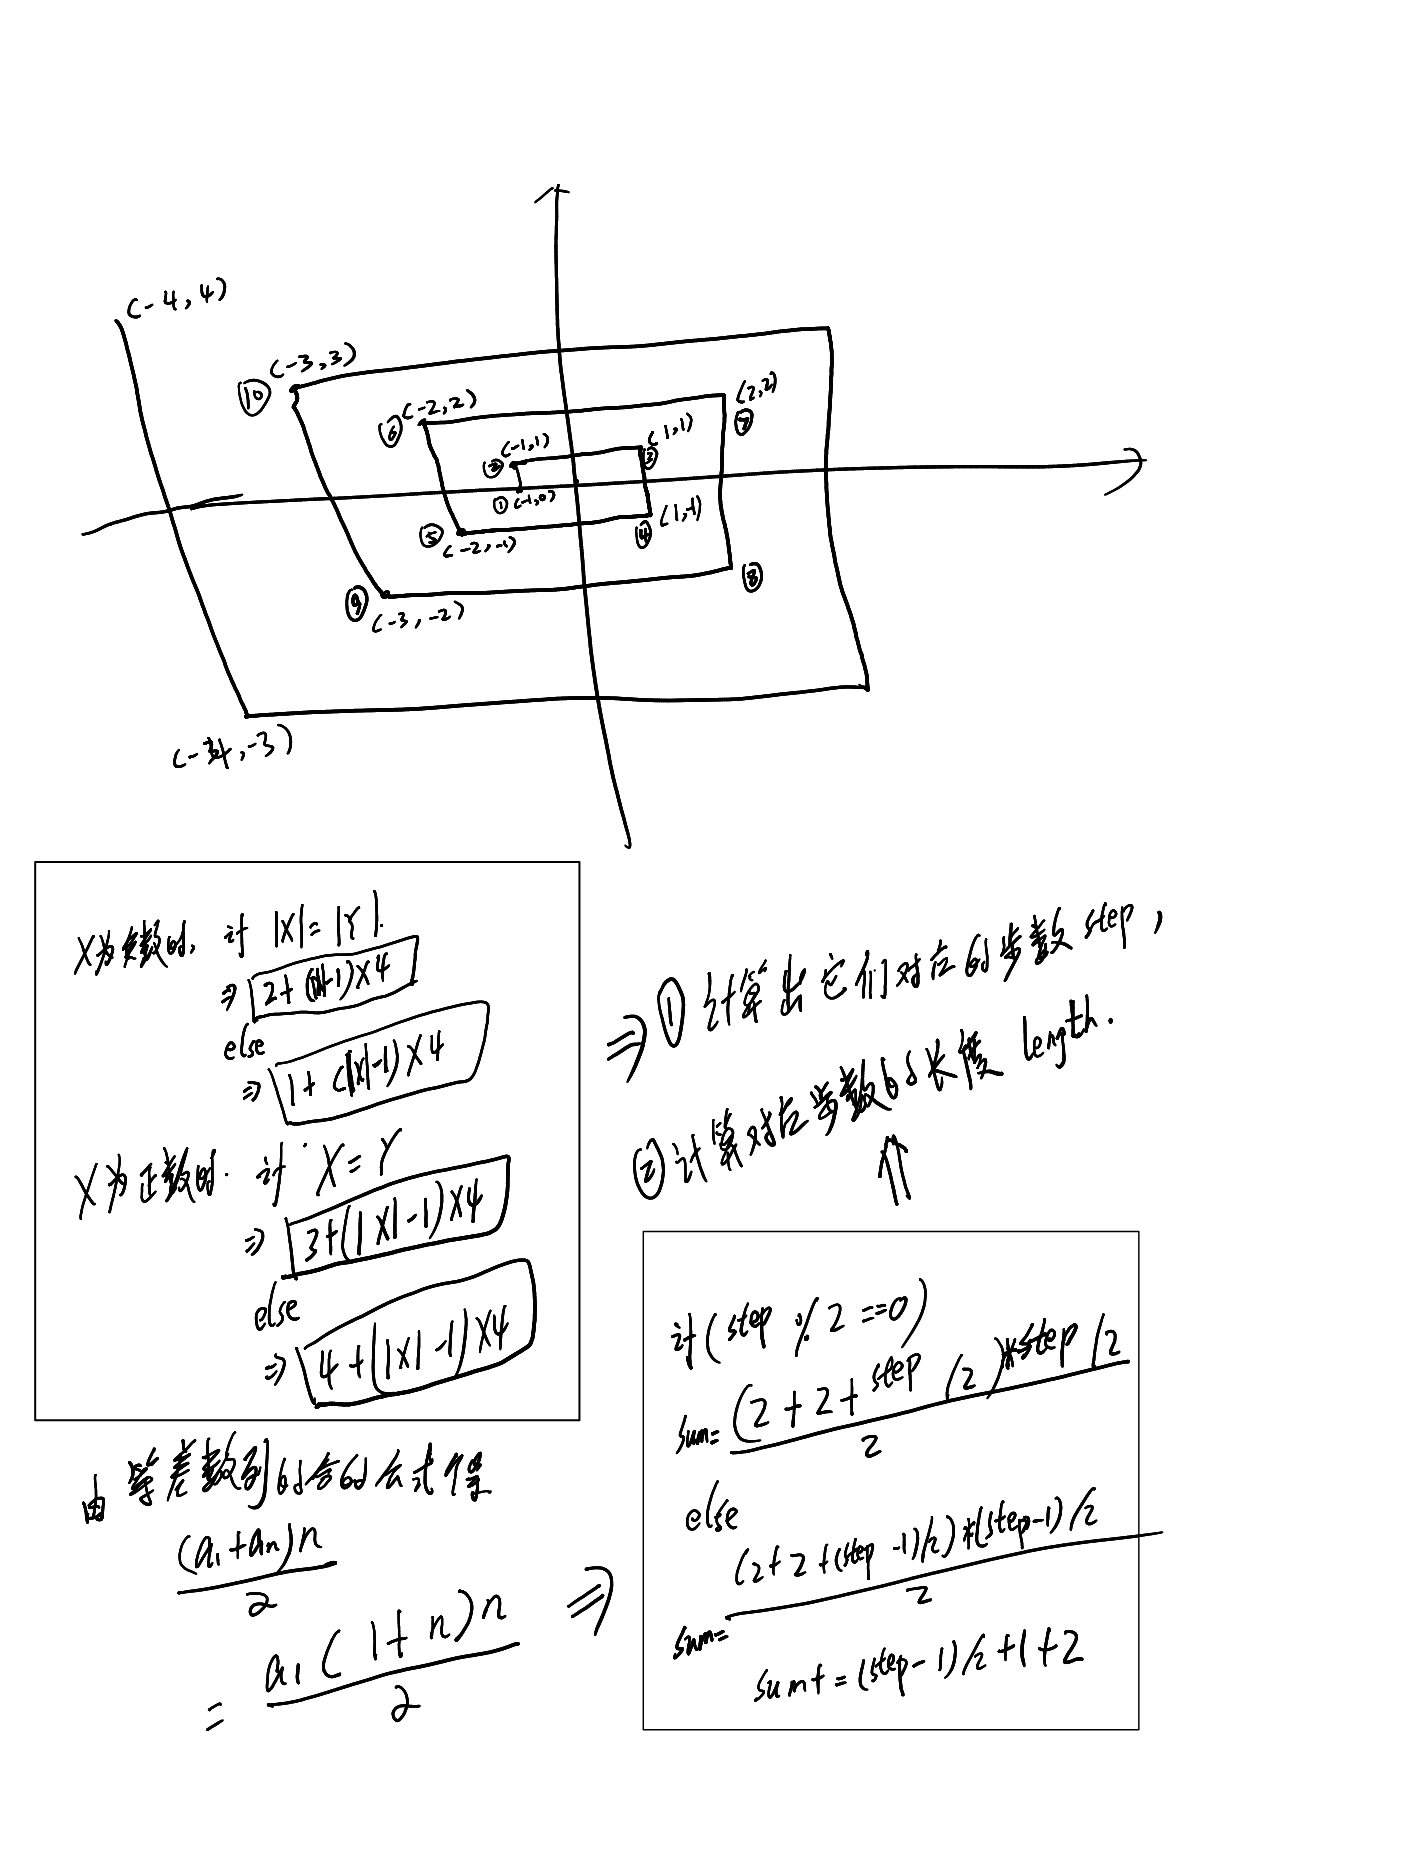 (-4,4)
(-3,3)
⑩
(-2,2)
⑥
(2,2)
⑦
(-1,1)
②
(1,1)
③
①(-1,0)
(1,-1)
④
⑤
(-2,-1)
⑧
⑨
(-3,-2)
-3)
X为负数时, 计 |X|=|Y|.
⇒ 2+(|X|-1)X4
else
⇒ 1+(|X|-1)X4
X为正数时. 计 X=Y
⇒ 3+(|X|-1)X4
else
⇒ 4+(|X|-1)X4
⇒ ①计算出它们对应的步数step,
②计算对应步数的长度 length.
⇑
由等差数列的合的公式得
(a₁+aₙ)n
2
= a₁(1+n)n
2
⇒
计(step % 2==0)
sum= (2+2+step/2)*step/2
2
else
sum= (2+2+(step-1)/2)*(step-1)/2
2
sum+=(step-1)/2+1+2